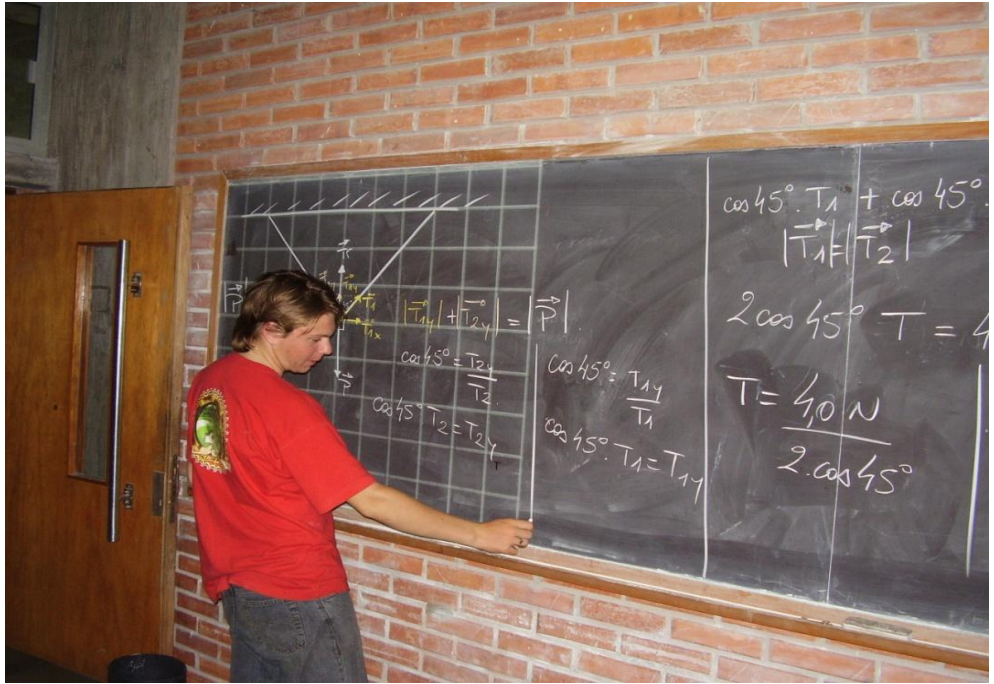 |P⃗|
R⃗
T⃗2y
T⃗1
T⃗1x
P⃗
|T⃗1y| + |T⃗2y| = |P⃗|.
cos45° = T2y/T2
cos45° T2 = T2y
cos45° = T1y/T1
cos45°. T1 = T1y
cos45°. T1 + cos45°.
|T⃗1| = |T⃗2|
2cos45° T = 4
T = 4,0 N
2.cos45°